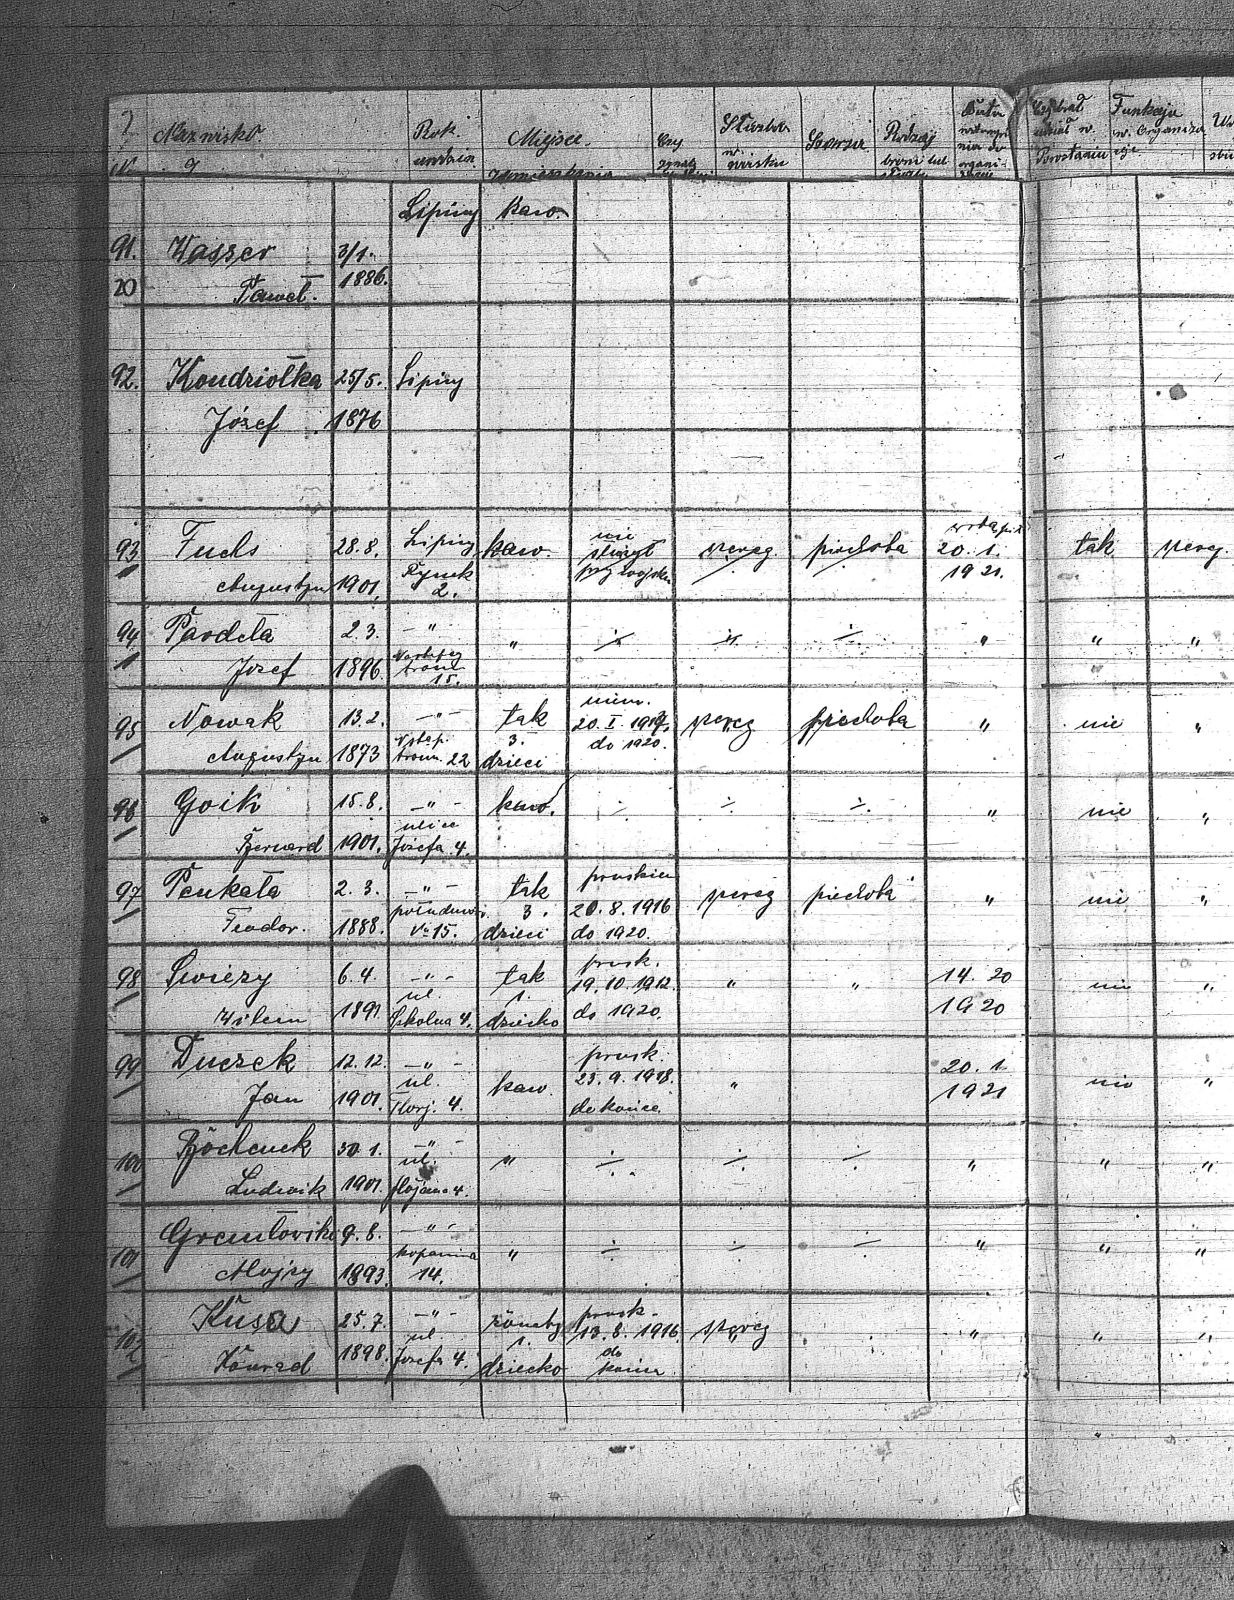 Nazwisko. Rok urodzin Miejsce zamieszkania Czy żonaty Służba w wojsku Szarża Rodzaj broni lub służby Data wstąpienia do organizacji Czy brał udział w Powstaniu Funkcja w Organizacji
Lipiny kaw.
91. Wasser 3/1.
20 Paweł. 1886.
92. Kondziołka 25/5. Lipiny
Józef 1876
93 Fuchs 28.8. Lipiny kaw. nie służył szereg piechota 20. 1. tak szereg.
Augustyn 1901. Rynek 2. przy wojsku 1921.
94 Pardela 2.3. — " — " ÷ " ÷ " " "
Jozef 1896. 15.
95 Nowak 13.2. — " — tak niem. 20. I. szereg piechota " nie "
Augustyn 1873 22 3. dzieci do 1920.
96 Goik 15.8. — " — kaw. ÷ ÷ ÷ " nie "
Bernard 1901. ulica Jozefa 4.
97 Penkała 2.3. — " — tak pruskiem szereg piechota " nie "
Teodor. 1888. 15. 3. dzieci 20.8.1916 do 1920.
98 Swiezy 6.4. — " — tak prusk. " " 14. 20 nie "
Wilem ul. Szkolna 4. 1. dziecko 19.10.1912. do 1920. 1920
99 Duczek 12.12. — " — kaw. prusk. " 20. 1. nie "
Jan 1901. ul. Florj. 4. 23.9.1918. do końca. 1921
100 30.1. — " — " ÷ ÷ ÷ " " "
Ludwik 1901. ul. 4.
101 9.8. — " — " ÷ ÷ ÷ " " "
1893. Kopanina 14.
102 Kusa 25.7. — " — żonaty prusk. szereg " " "
Konrad 1898. ul. Jozefa 4. 1. dziecko 13.8.1916. do końca.